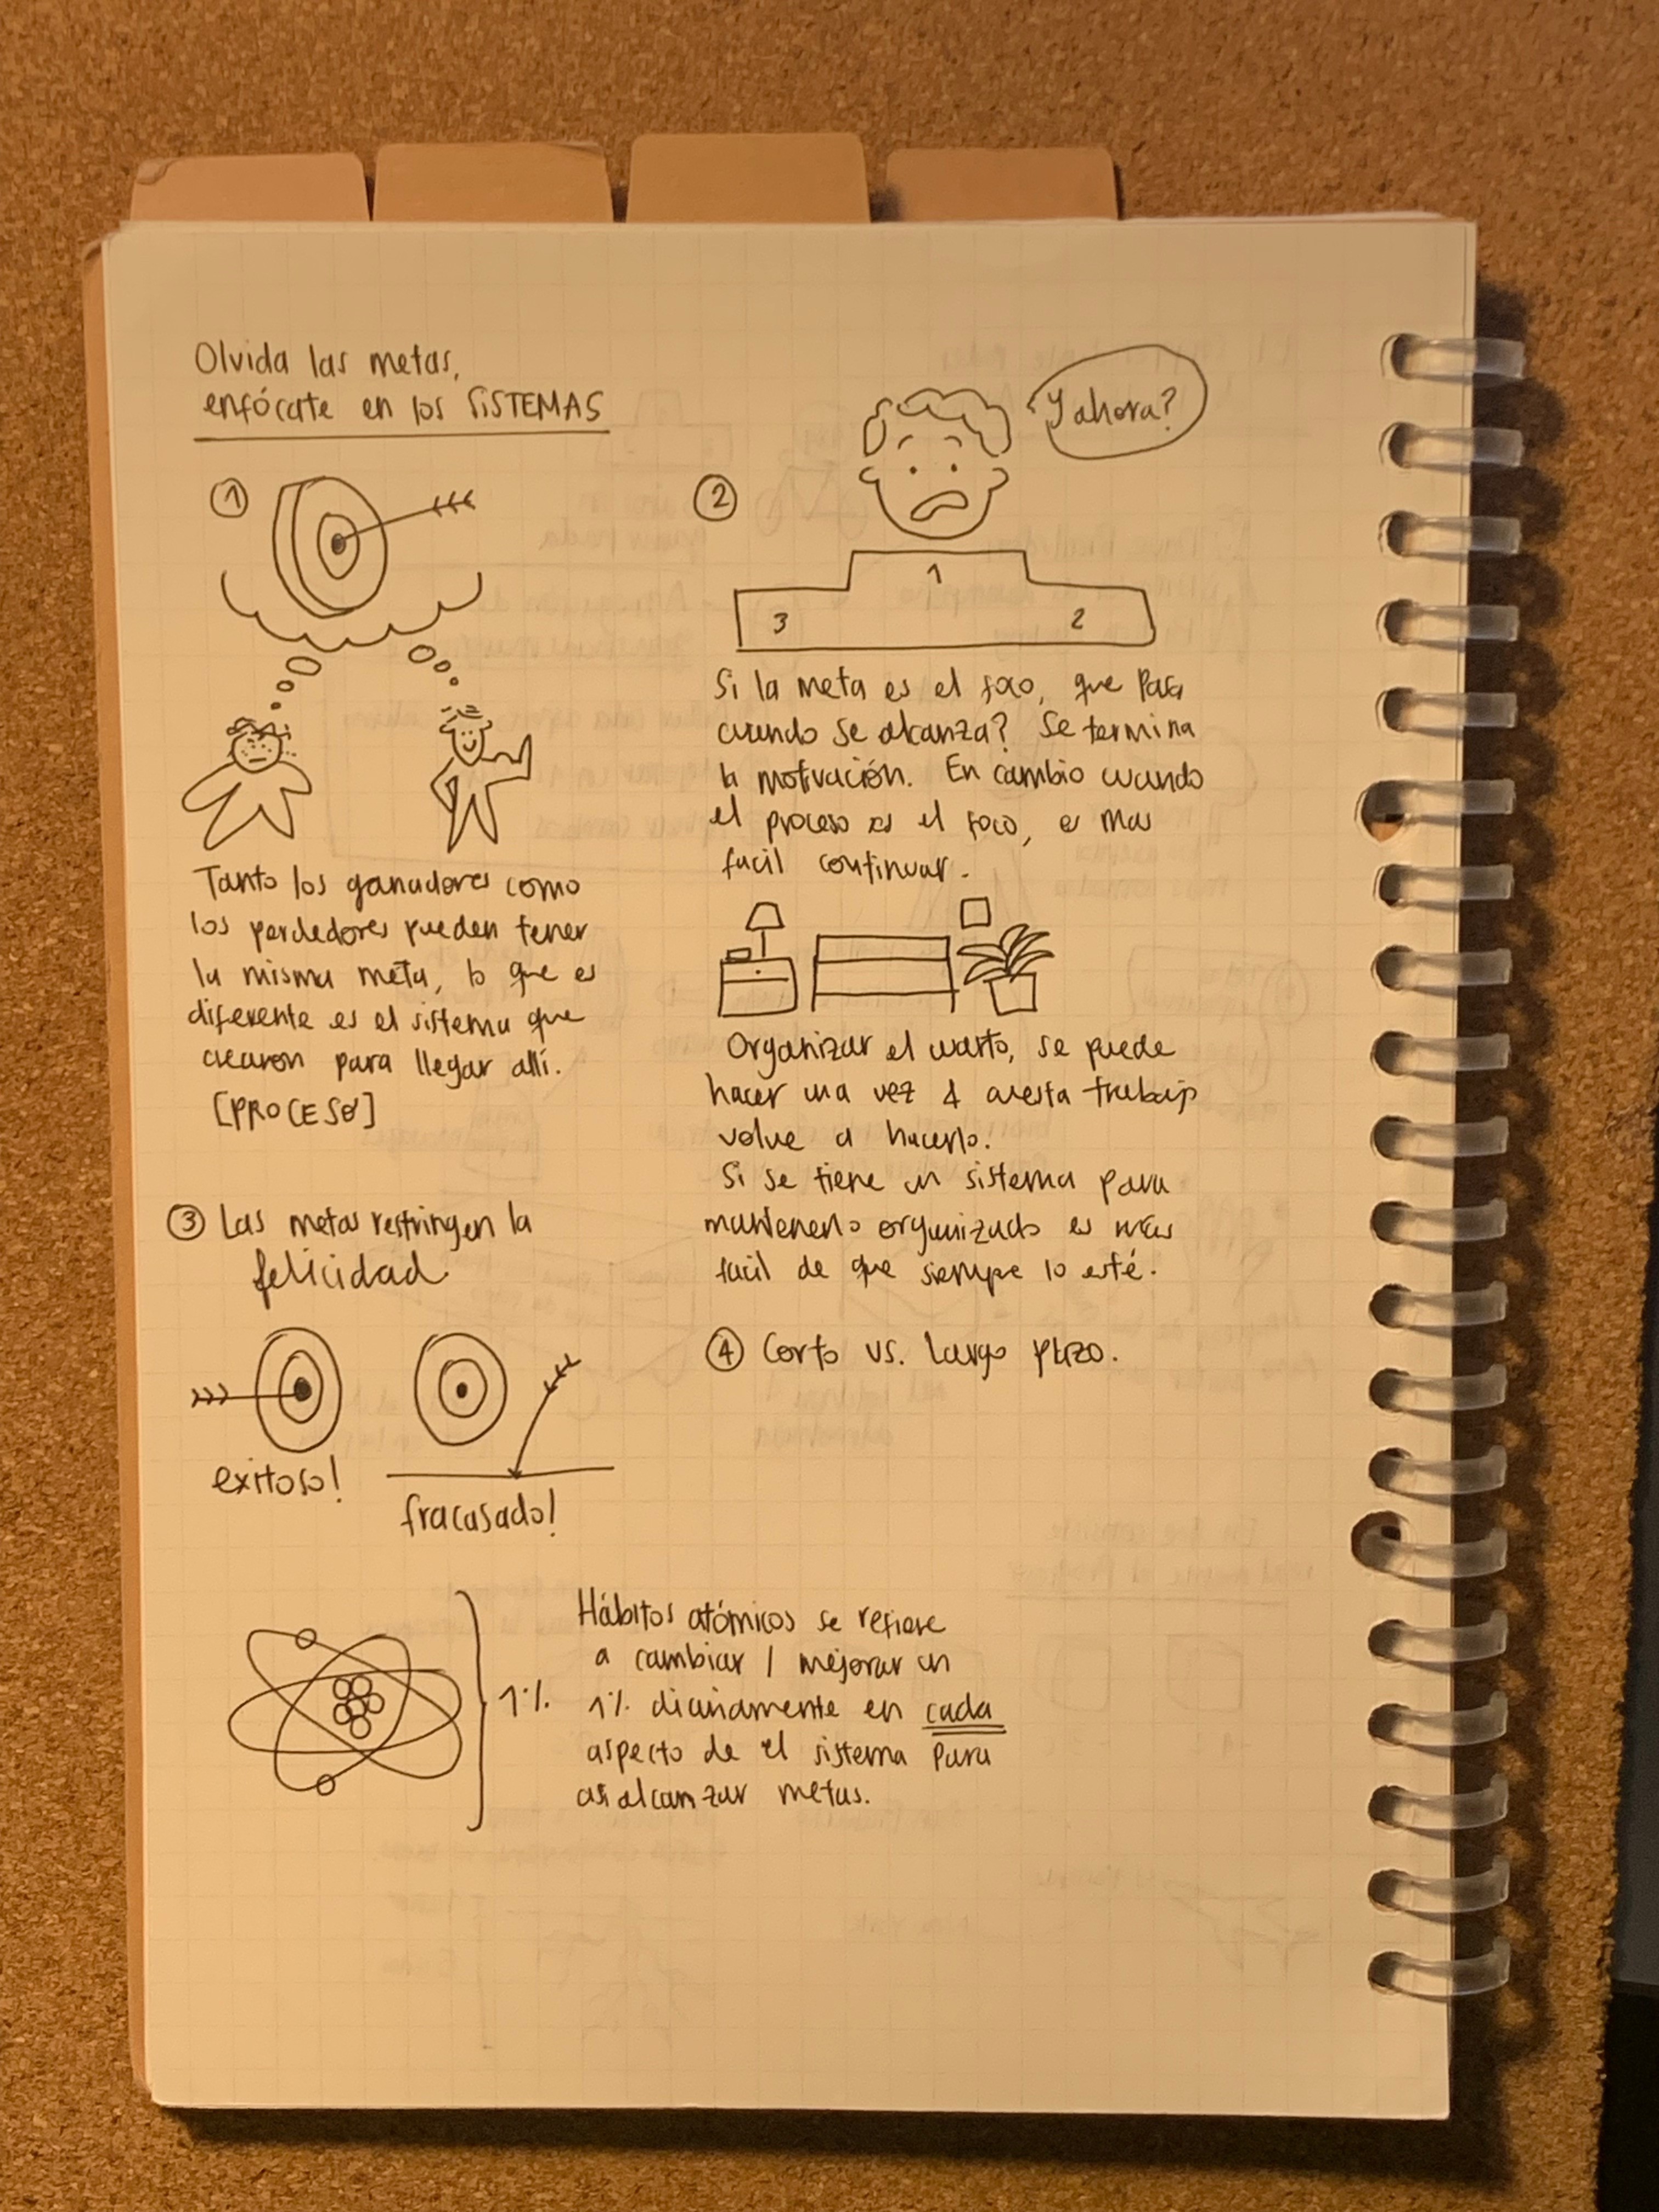 Olvida las metas,
enfócate en los SISTEMAS
1
Tanto los ganadores como
los perdedores pueden tener
la misma meta, lo que es
diferente es el sistema que
crearon para llegar allí.
[PROCESO]
2
Y ahora?
1
3
2
Si la meta es el foco, que pasa
cuando se alcanza? Se termina
la motivación. En cambio cuando
el proceso es el foco, es mas
facil continuar.
Organizar el cuarto, se puede
hacer una vez & cuesta trabajo
volve a hacerlo.
Si se tiene un sistema para
mantenerlo organizado es más
facil de que siempre lo esté.
3 Las metas restringen la
felicidad
exitoso!
fracasado!
4 Corto vs. largo plazo.
1%
Hábitos atómicos se refiere
a cambiar / mejorar un
1% diariamente en cada
aspecto de el sistema para
asi alcanzar metas.